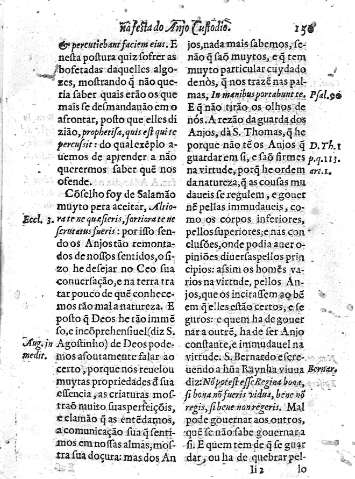 na festa do Anjo Custodio. 15
& percutiebant faciem eius. E
nesta postura quiz sofrer as
bofetadas daquelles algo-
zes, mostrando q̃ não que-
ria saber quais erão os que
mais se desmandauão em o
afrontar, posto que elles di
zião, prophetiza, quis est qui te
percußit: do qual exẽplo a-
uemos de aprender a não
querermos saber quẽ nos
ofende.
Cõselho foy de Salamão
muyto pera aceitar, Altio-
Eccl. 3. ra te ne quæsieris, fortiora te ne
scrutatus fueris: por isso sen-
do os Anjos tão remonta-
dos de nossos sentidos, o si-
zo he desejar no Ceo sua
conuersação, e na terra tra
tar pouco de quẽ conhece-
mos rão mal a natureza. E
posto q̃ Deos he rão immẽ
so, e incõprehensiuel (diz S.
Aug. in Agostinho) de Deos pode-
medit. mos afoutamente falar ao
certo, porque nos reuelou
muytas propriedades d̃ sua
essencia, as criaturas mos-
trão muito suas perfeições,
e clamão q̃ as entẽdamos,
a comunicação sua q̃ senti-
mos em nossas almas, mos-
tra sua doçura: mas dos An
jos, nada mais sabemos, se-
não q̃ saõ muytos, e q̃ tem
muyto particular cuydado
denòs, q̃ nos trazẽ nas pal-
mas, In manibus portabunt te. Psal. 90
E q̃ não tirão os olhos de
nòs. A rezão da guarda dos
Anjos, dà S. Thomas, q̃ he
porque não tẽ os Anjos q̃ D. Th. 1
guardar em si, e saõ firmes p. q. 113.
na virtude, porq̃ he ordem art. 1.
da natureza, q̃ as cousas mu
daueis se regulem, e gouer
nẽ pellas immudaueis, co-
mo os corpos inferiores,
pellos superiores; e nas con
clusões, onde podia auer o-
piniões diuersas pellos prin
cipios: assim os homẽs va-
rios na virtude, pellos An-
jos, que os incitassem ao bẽ
em q̃ elles estão certos, e se
guros: e quem ha de gouer
nar a outrẽ, ha de ser Anjo
constante, e immudauel na
virtude. S. Bernardo escre-
uendo a hũa Raynha viuua Bernar.
diz: Nõ potest esse Regina bona,
si bona nõ fueris vidua, bene nõ
regis, si bene non regeris. Mal
pode gouernar aos outros,
quẽ se não sabe gouernar a
si. E quem tem de q̃ se guar
dar, ou ha de quebrar pel-
Ii 2 lo